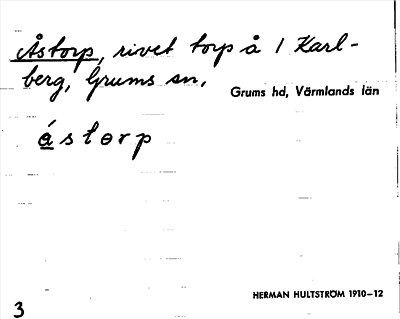 Åstorp, rivet torp å 1 Karl-
berg, Grums sn,
Grums hd, Värmlands län
ástɵrp
HERMAN HULTSTRÖM 1910–12
3